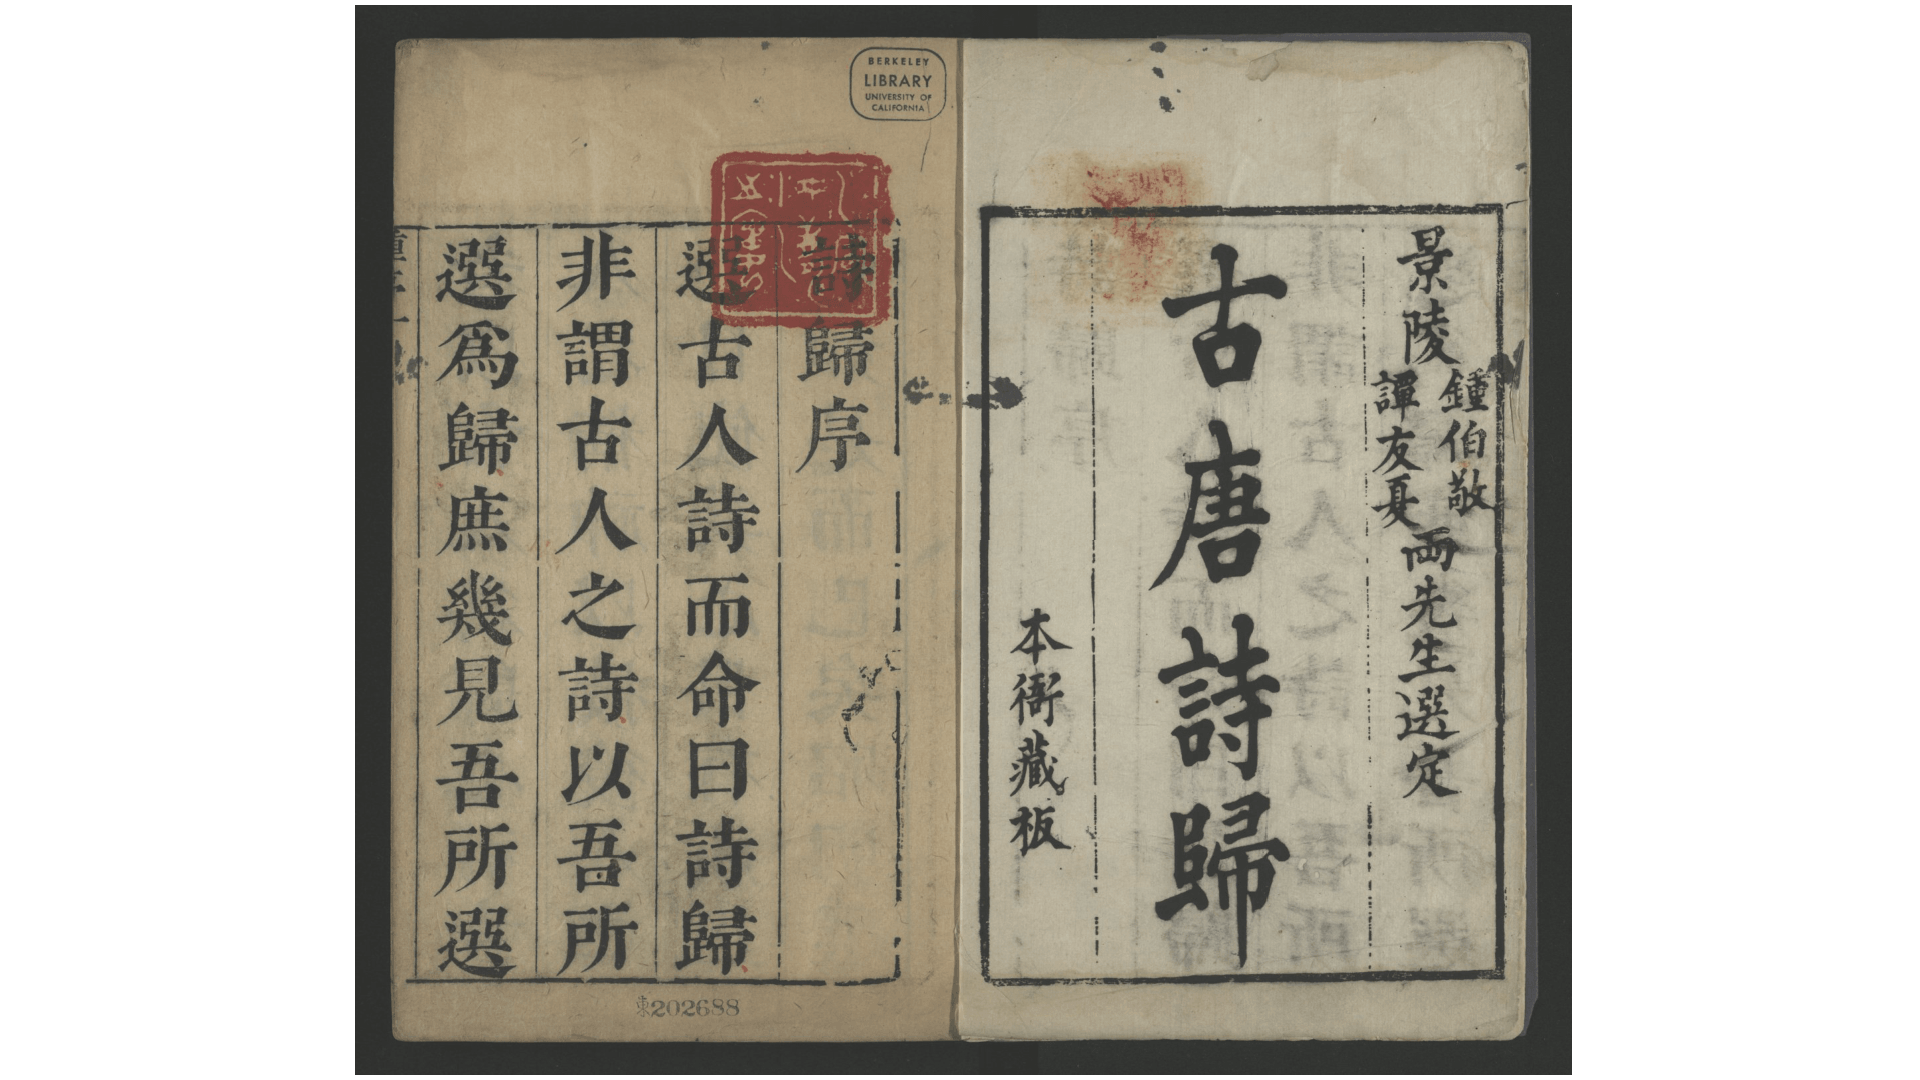 景陵
鍾伯敬
譚友夏
両先生選定
古唐詩歸
本衙藏板
BERKELEY
LIBRARY
UNIVERSITY OF
CALIFORNIA
詩歸序
選古人詩而命曰詩歸
非謂古人之詩以吾所
選爲歸庶幾見吾所選
東202688